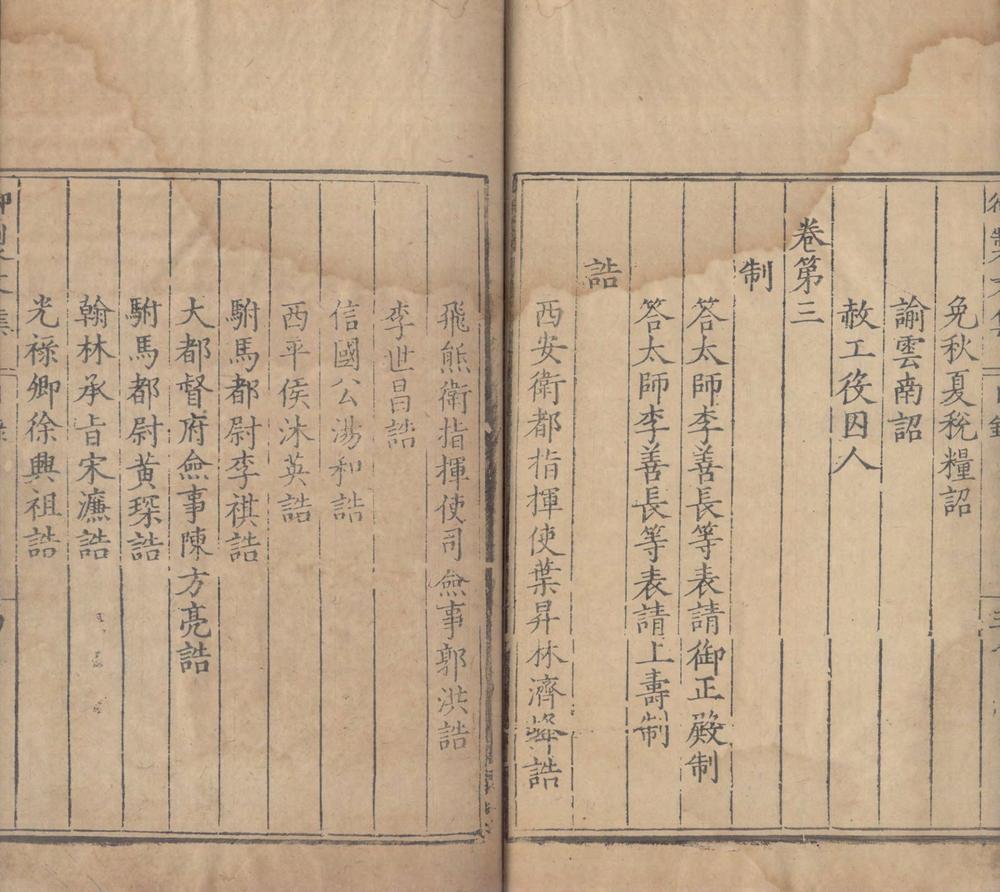 免秋夏稅糧詔
諭雲南詔
赦工役囚人
卷第三
制
答太師李善長等表請御正殿制
答太師李善長等表請上壽制
誥
西安衛都指揮使葉昇林濟峰誥
飛熊衛指揮使司僉事郭洪誥
李世昌誥
信國公湯和誥
西平侯沐英誥
駙馬都尉李祺誥
大都督府僉事陳方亮誥
駙馬都尉黃琛誥
翰林承旨宋濂誥
光祿卿徐興祖誥